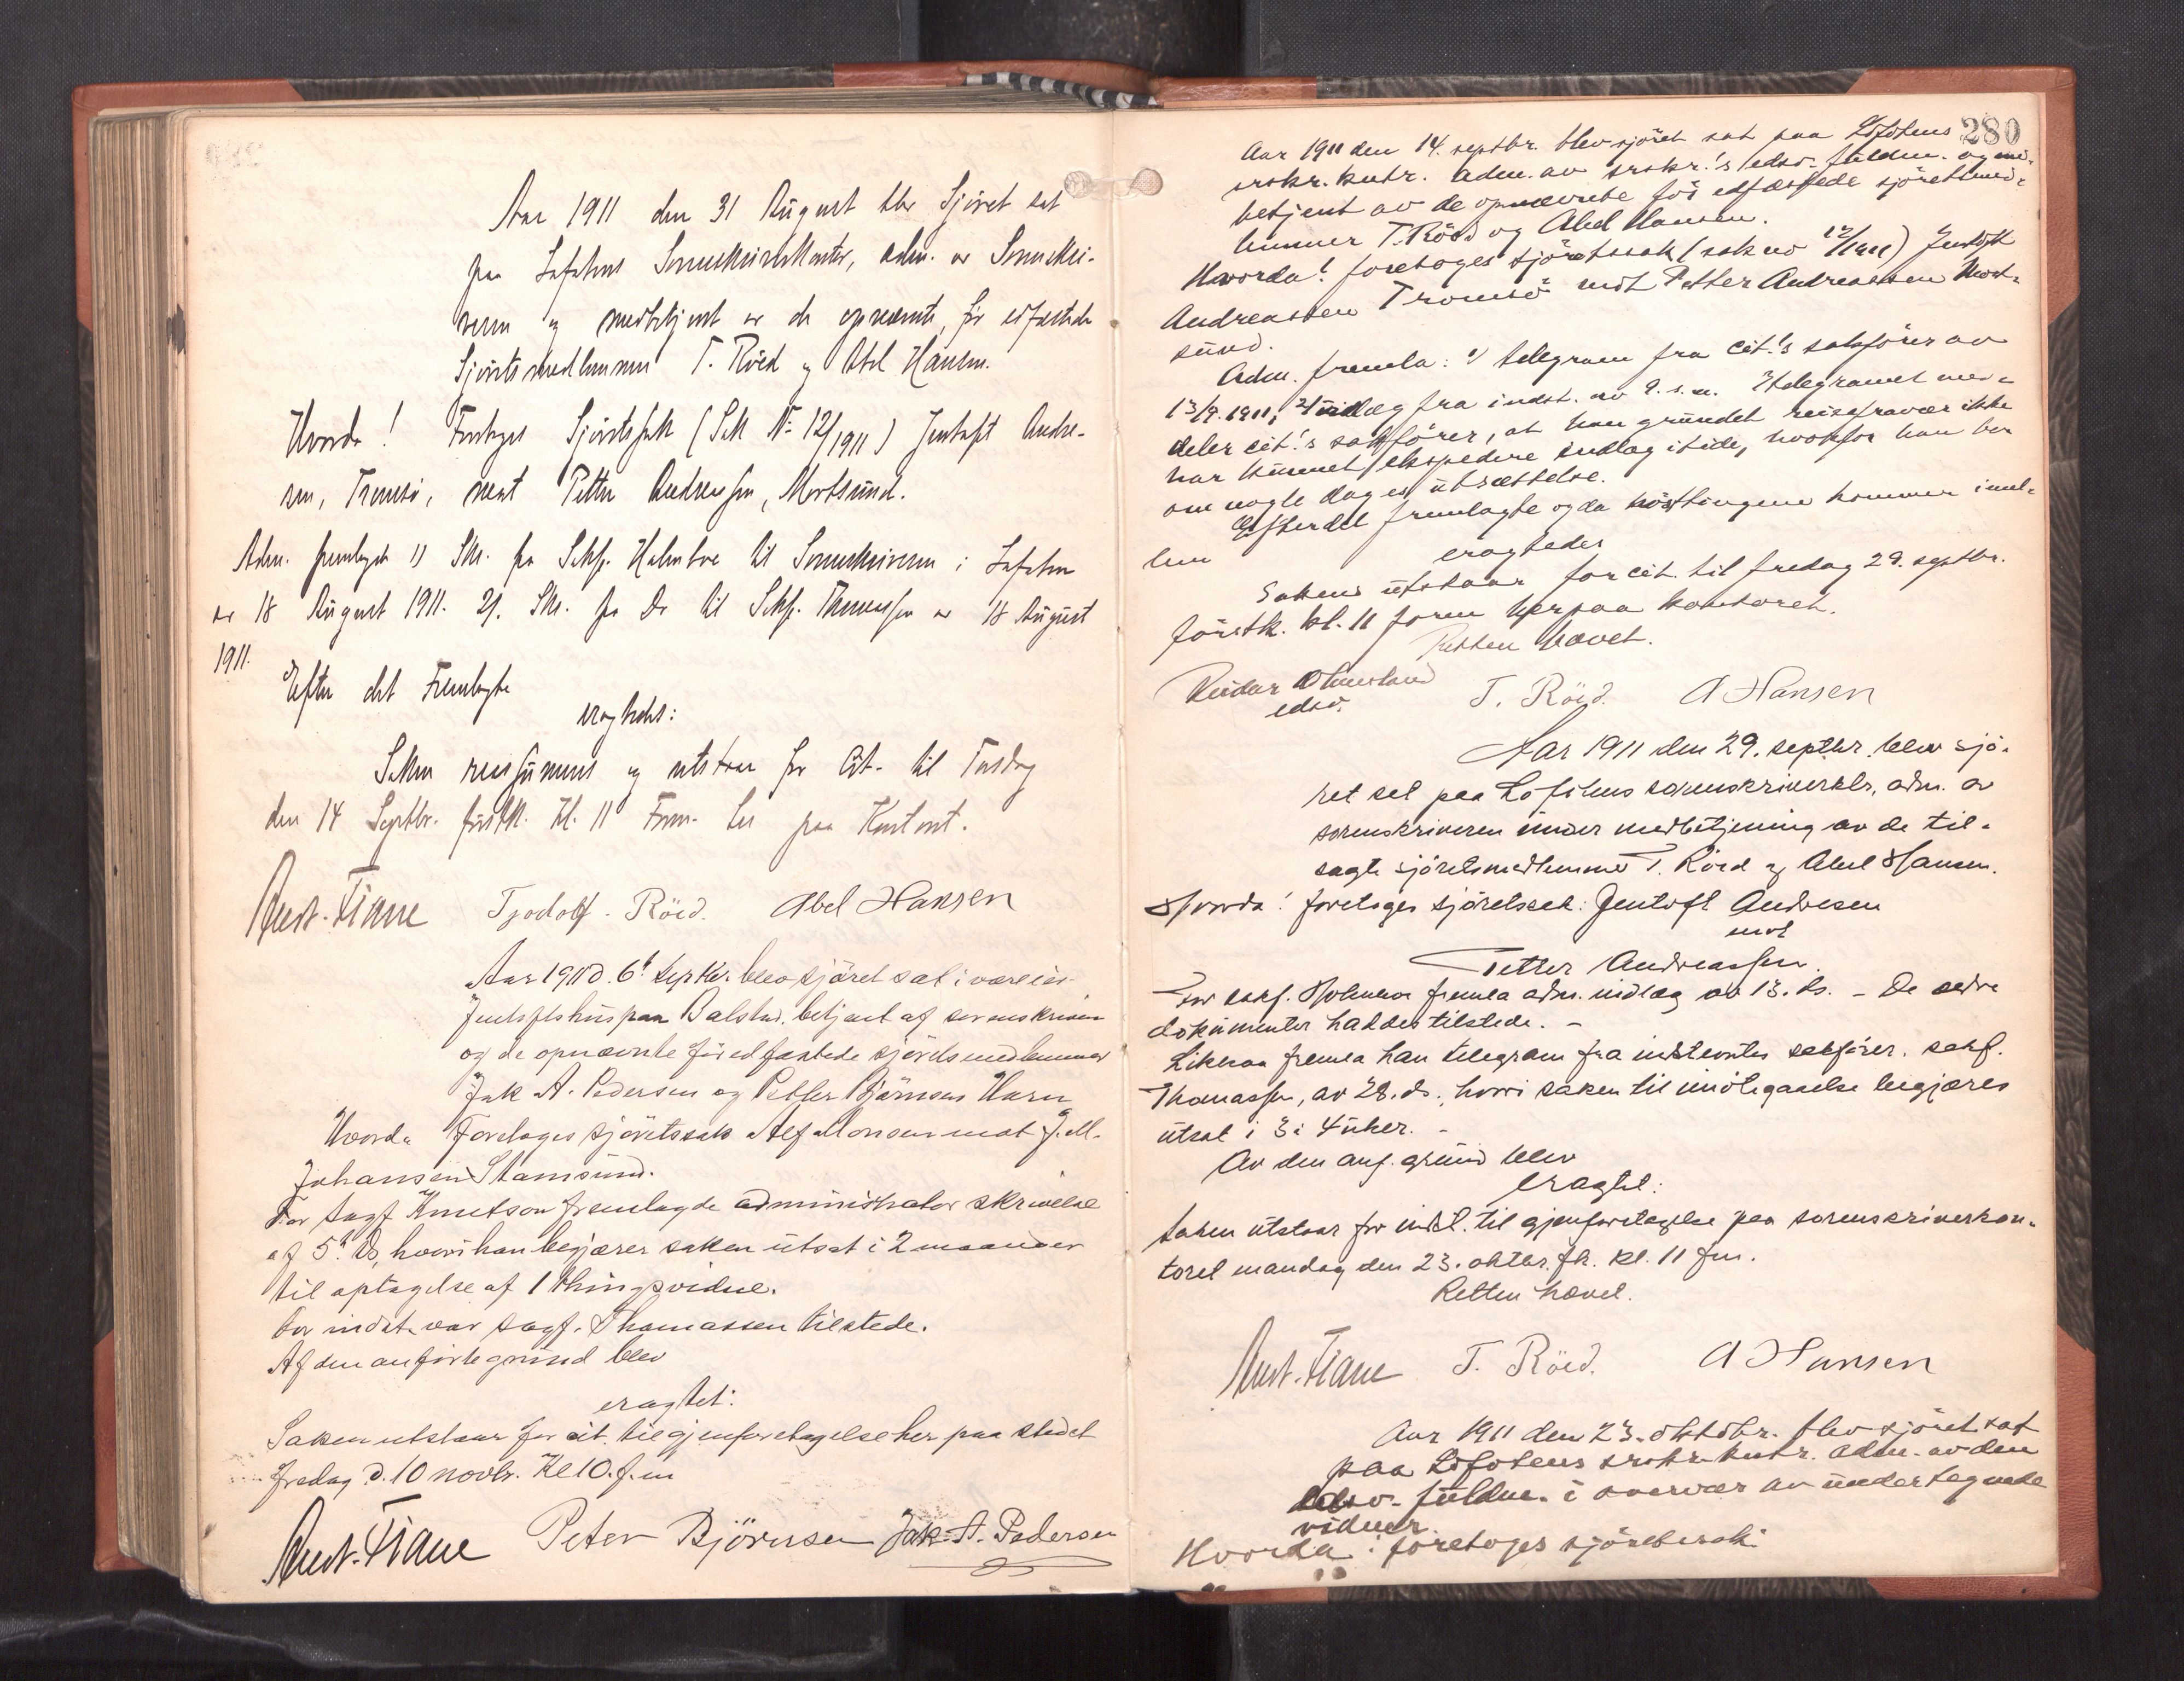 Aar 1911 den 31 August blev Sjöret sat
paa Lofotens Sorenskriverkontor, adm. av Sorenskri-
veren og medbetjent av de opnævnte, för edfæstede
Sjöretsmedlemmer T. Röed og Abel Hansen.
Hvorda! Foretoges Sjöretssak (Sak No 12/1911) Jentoft Andre-
sen, Tromsö, mot Petter Andreassen, Mortsund.
Adm. fremlagde 1) Skr. fra Sakf. Holmboe til Sorenskriveren i Lofoten
av 18 August 1911. 2). Skr. fra Do til Sakf. Thomassen av 18 August
1911.
Efter det Fremlagte
eragtedes:
Saken reassumeres og utstaar for Cit. til Torsdag
den 14 Septbr. förstk. Kl. 11 Form. her paa Kontoret.
Aust. Fiane Tjodolf Röed. Abel Hansen
Aar 1911 d. 6t septbr. blev sjöret sat i væreier
Jentofts hus paa Balstad, betjent af sorenskriver
og de opnævnte för edfæstede sjöretsmedlemmer
Jak A. Pedersen og Petter Björnsen Ure
Hvorda Foretoges sjöretssak Alf Monsen mot J. M.
Johansen Stamsund.
For sagf Knutson fremlagde administrator skrivelse
af 5t ds, hvori han begjærer saken utsat i 2 maaneder
til optagelse af 1 thingsvidne.
For indst. var sagf. Thomassen tilstede.
Af den anförte grund blev
eragtet:
Saken utstaar for cit. til gjenforetagelse her paa stedet
fredag d. 10 novbr. Kl 10. f.m
Aust. Fiane Peter Björnsen Jak. A. Pedersen
280
Aar 1911 den 14. septbr. blev sjöret sat paa Lofotens
srskr. kntr. adm. av srskr.'s edsv. fuldm. og med-
betjent av de opnævnte för edfæstede sjöretsmed-
lemmer T. Röed og Abel Hansen.
Hvorda! foretoges sjöretssak (sak no 12/1911) Jentoft
Andreassen Tromsö mot Petter Andreassen Mort-
sund.
Adm. fremla: 1) telegram fra cit.'s sakförer av
13/9. 1911, 2) indlæg fra indst. av 9. s.m. I telegramet med-
deler cit.'s sakförer, at han grundet reisefravær ikke
har kunnet ekspedere indlæg itide, hvorfor han ber
om nogle dages utsættelse.
Efter det fremlagte og da hösttingene kommer imel-
lem eragtedes
Saken utstaar for cit. til fredag 29. septbr.
förstk. kl. 11 form her paa kontoret.
Retten hævet.
Reidar
edsv. T. Röed. A Hansen
Aar 1911 den 29. septbr. blev sjö-
ret sat paa Lofotens sorenskriverktr, adm. av
sorenskriveren under medbetjening av de til-
sagte sjöretsmedlemmer T. Röed og Abel Hansen.
Hvorda! foretoges sjöretssak: Jentoft Andresen
mot
Petter Andreassen.
For sakf. Holmboe fremla adm. indlæg av 13. ds. - De ældre
dokumenter haddes tilstede. -
Likesaa fremla han telegram fra indstevntes sakförer, sakf.
Thomassen, av 28. ds., hvori saken til imötegaaelse begjæres
utsat i 3 a 4 uker. -
Av den anf. grund blev
eragtet:
Saken utstaar for indst. til gjenforetagelse paa sorenskriverkon-
toret mandag den 23. oktbr. fk. kl. 11 fm.
Retten hævet.
Aust. Fiane T. Röed. A Hansen
Aar 1911 den 23. oktobr. blev sjöret sat
paa Lofotens srskr. kntr. adm. av den
edsv. fuldm. i overvær av undertegnede
vidner.
Hvorda: foretoges sjöretssak: